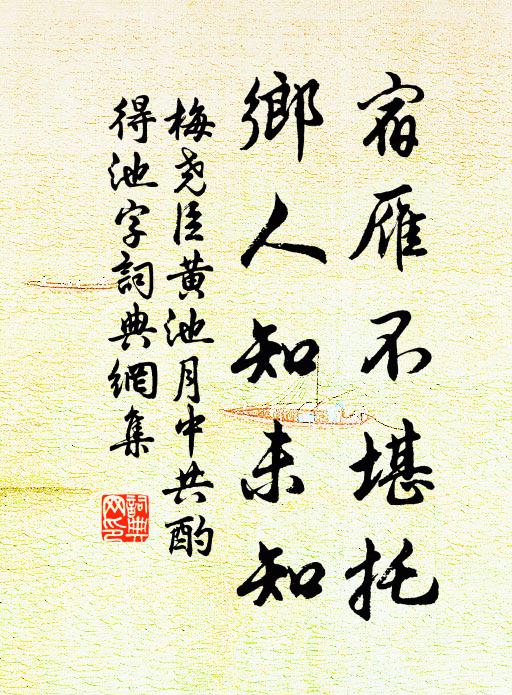 宿雁不堪托
鄉人知未知
梅尧臣黄池月中共酌
得池字詞典網集
詞典
网印